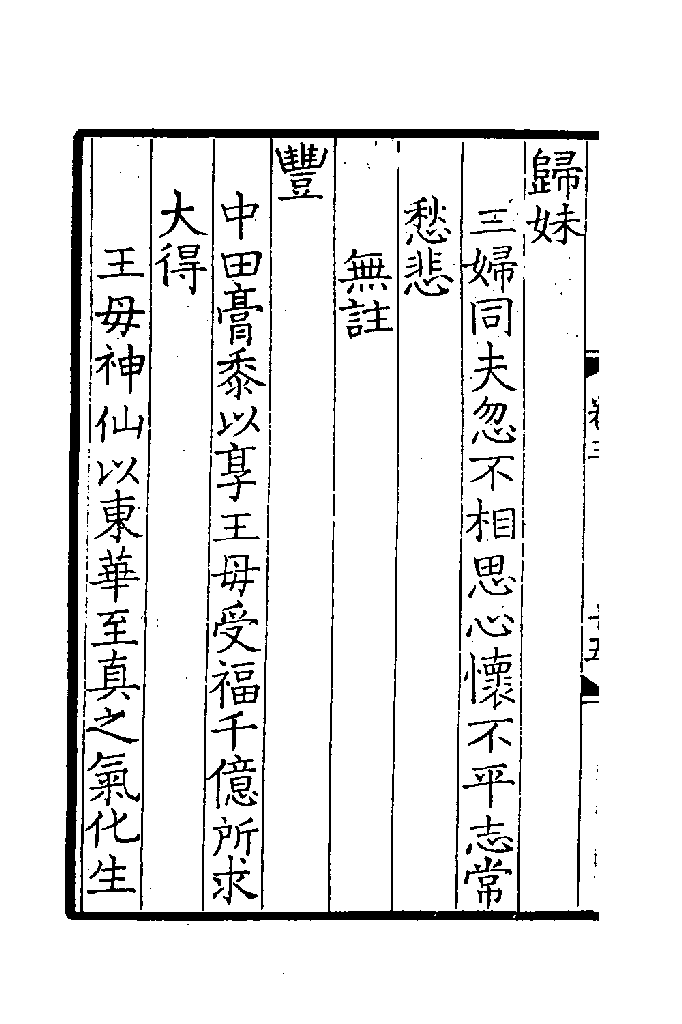 歸妹
三婦同夫忽不相思心懷不平志常
愁悲
無註
豐
中田膏黍以享王毋受福千億所求
大得
王毋神仙以東華至真之氣化生